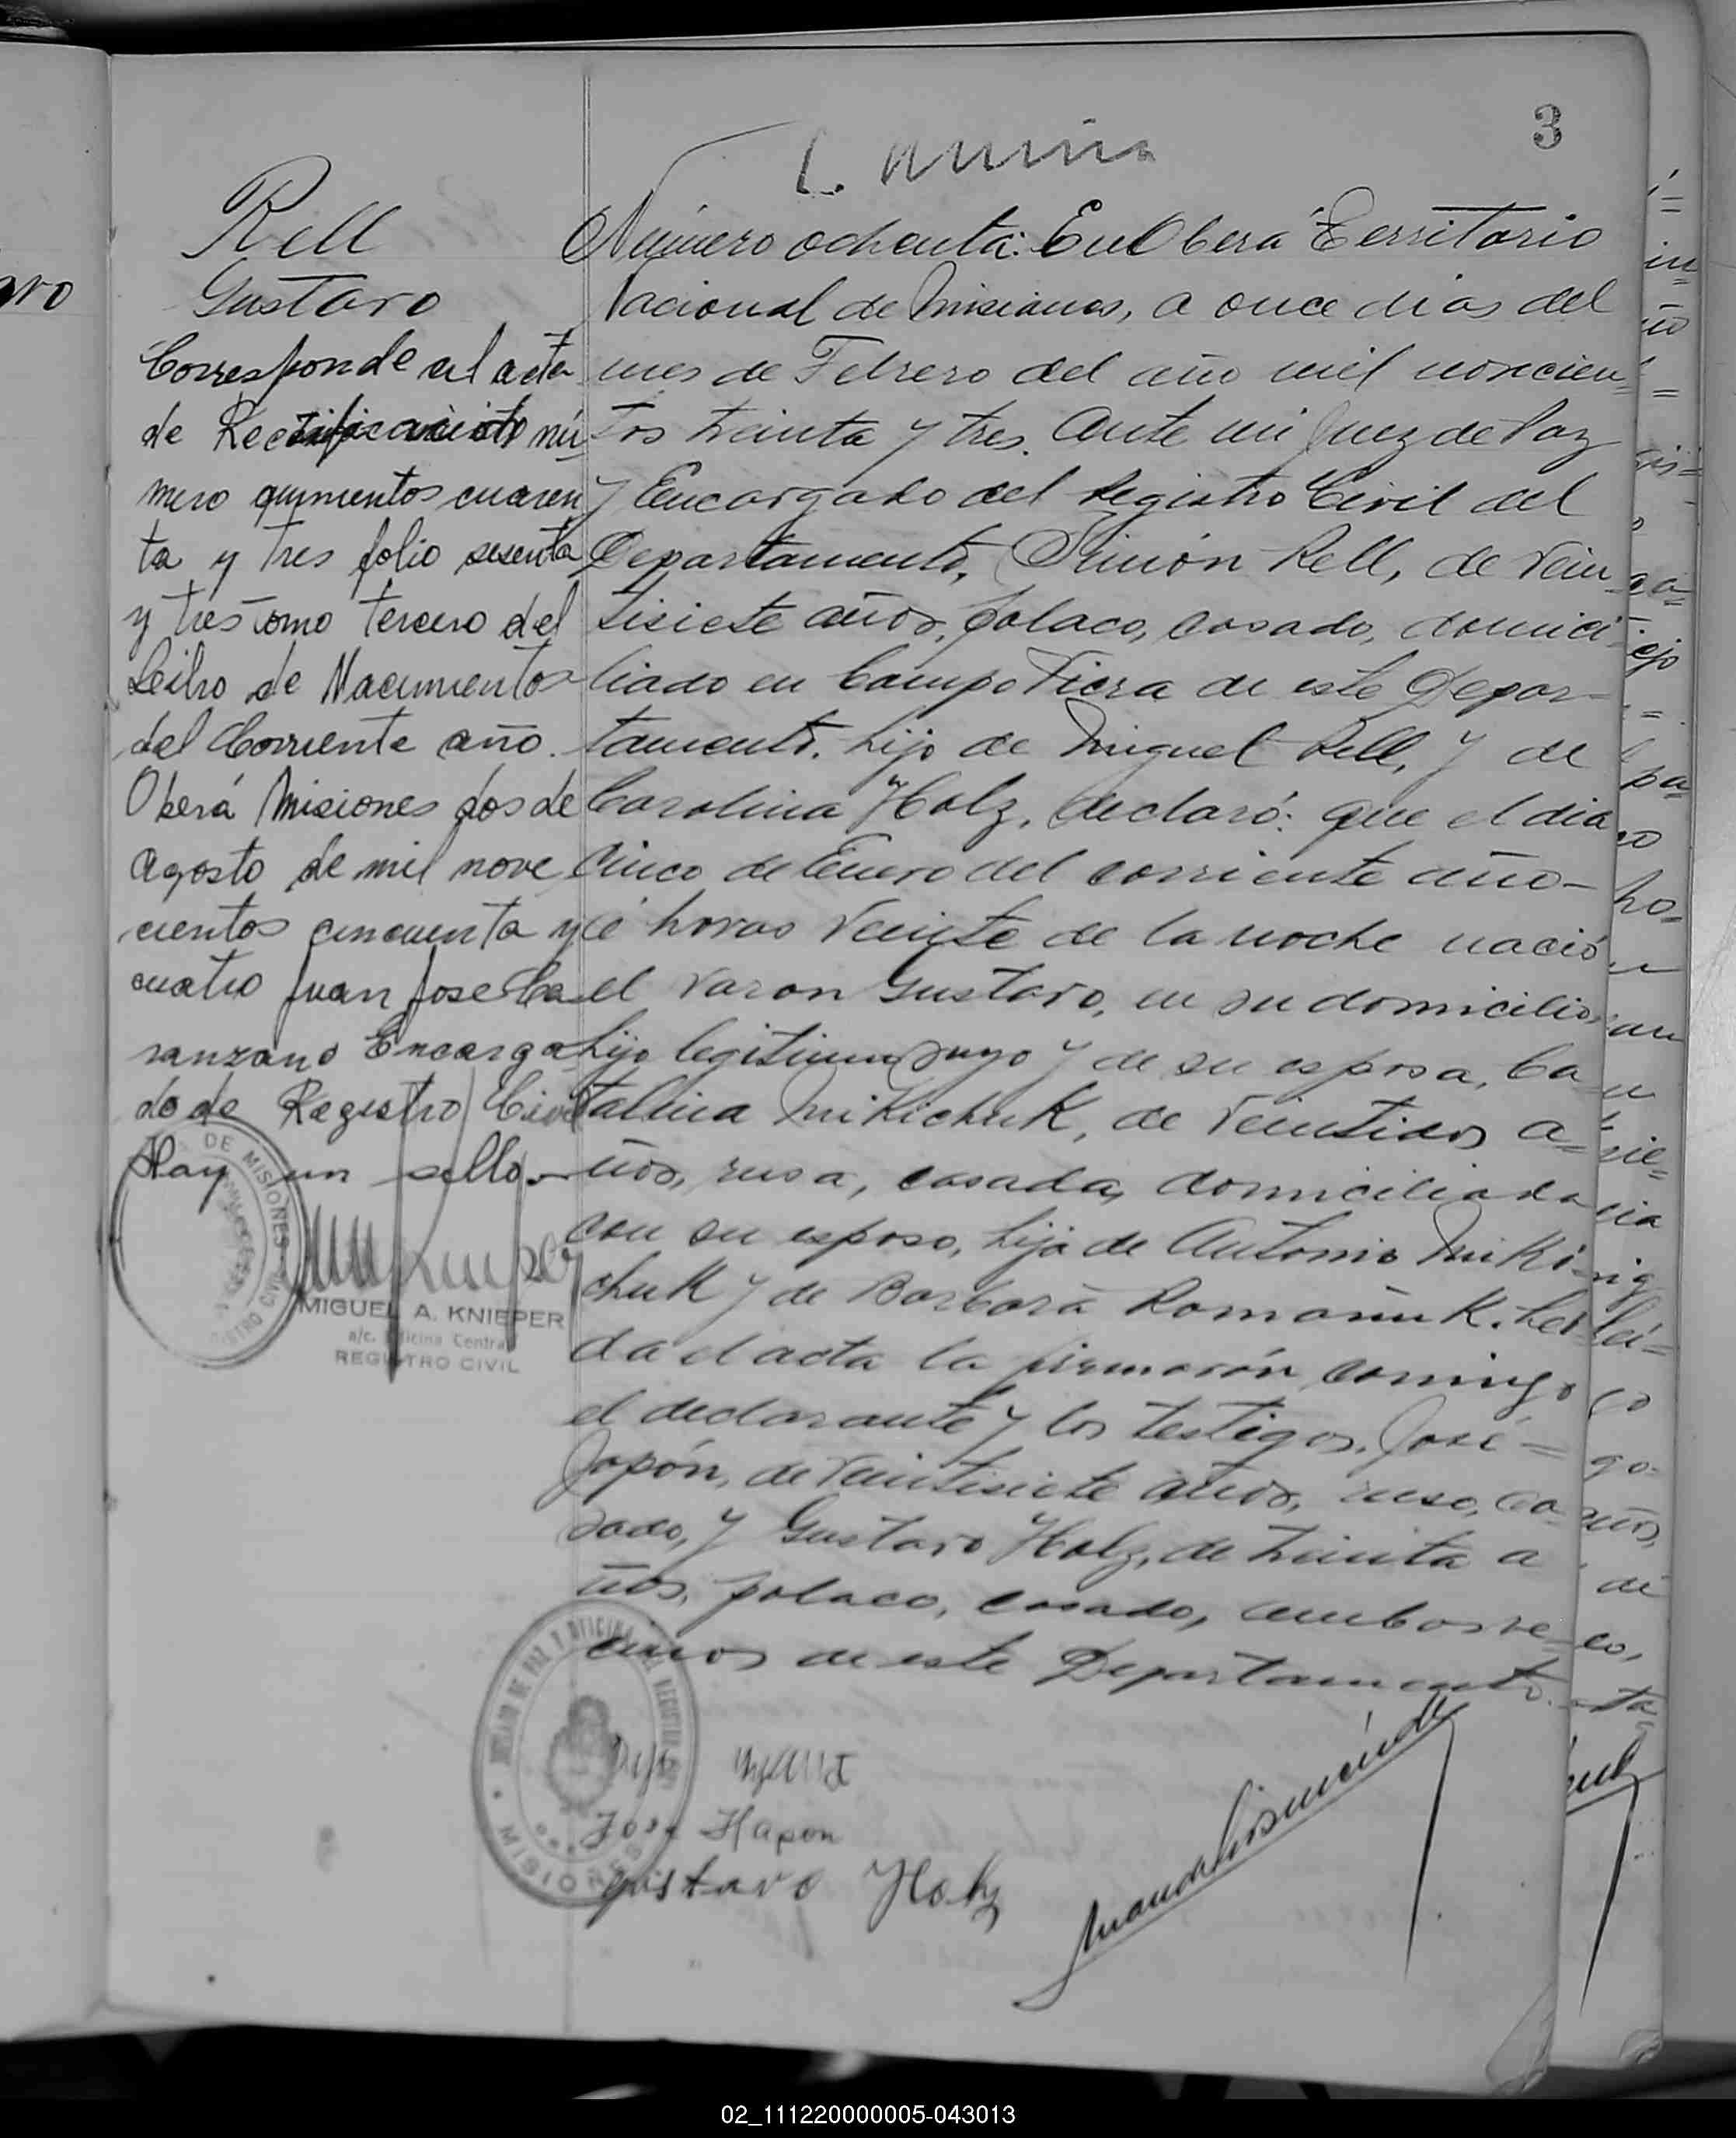 3
Rell
Gustavo
Corresponde al acta
de Rectificación nú
mero quinientos cuaren
ta y tres folio sesenta
y tres tomo tercero del
Libro de Nacimientos
del Corriente año.
Oberá Misiones dos de
Agosto de mil nove
cientos cincuenta y
cuatro Juan Jose Ca
ranzano Encarga
do de Registro Civil
Hay un sello.
DE MISIONES
MIGUEL A. KNIEPER
a/c. Oficina Central
REGISTRO CIVIL
Número ochenta: En Oberá Territorio
Nacional de Misiones, a once dias del
mes de Febrero del año mil novecien=
tos treinta y tres. Ante mi Juez de Paz
y Encargado del Registro Civil del
Departamento, Simón Rell, de vein
tisiete años, polaco, casado, domici
liado en Campo Viera de este Depar-
tamento. hijo de Miguel Rell, y de
Carolina Holz, declaró: que el dia
cinco de Enero del corriente año-
é horas veinte de la noche nació
el varon Gustavo, en su domicilio,
hijo legitimo suyo y de su esposa, Ca
talina Mikichuk, de veintidos a=
ños, rusa, casada, domiciliada
con su esposo, hija de Antonio Miki-
chuk y de Barbara Romañuk. Leí-
da el acta la firmarón comigo
el declarante y los testigos, José=
Japón, de veintisiete años, ruso, ca-
sado, y Gustavo Holz, de treinta a
ños, polaco, casado, ambos ve-
cinos de este Departamento.
MISIONES
José Hapon
Gustavo Holz
02_111220000005-043013